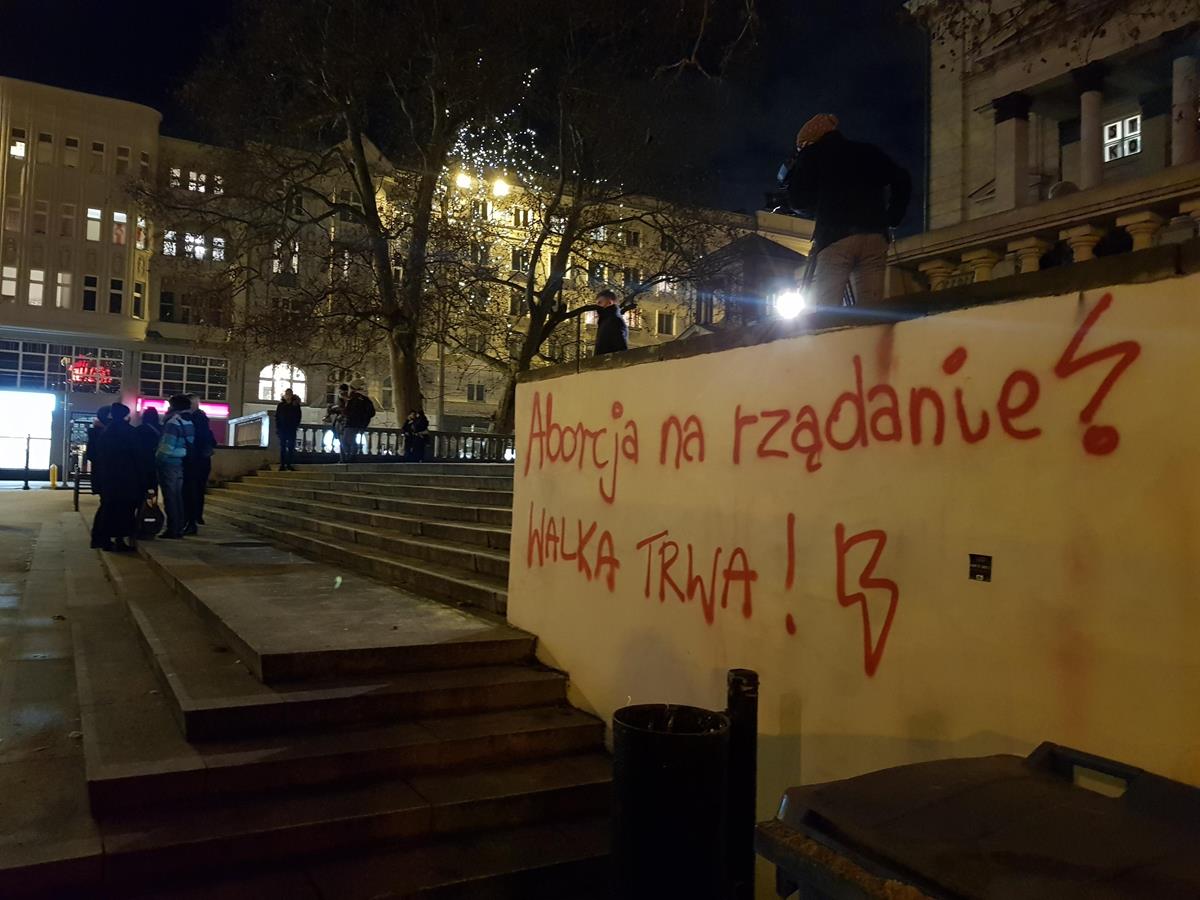 Aborcja na rządanie
WALKA TRWA!